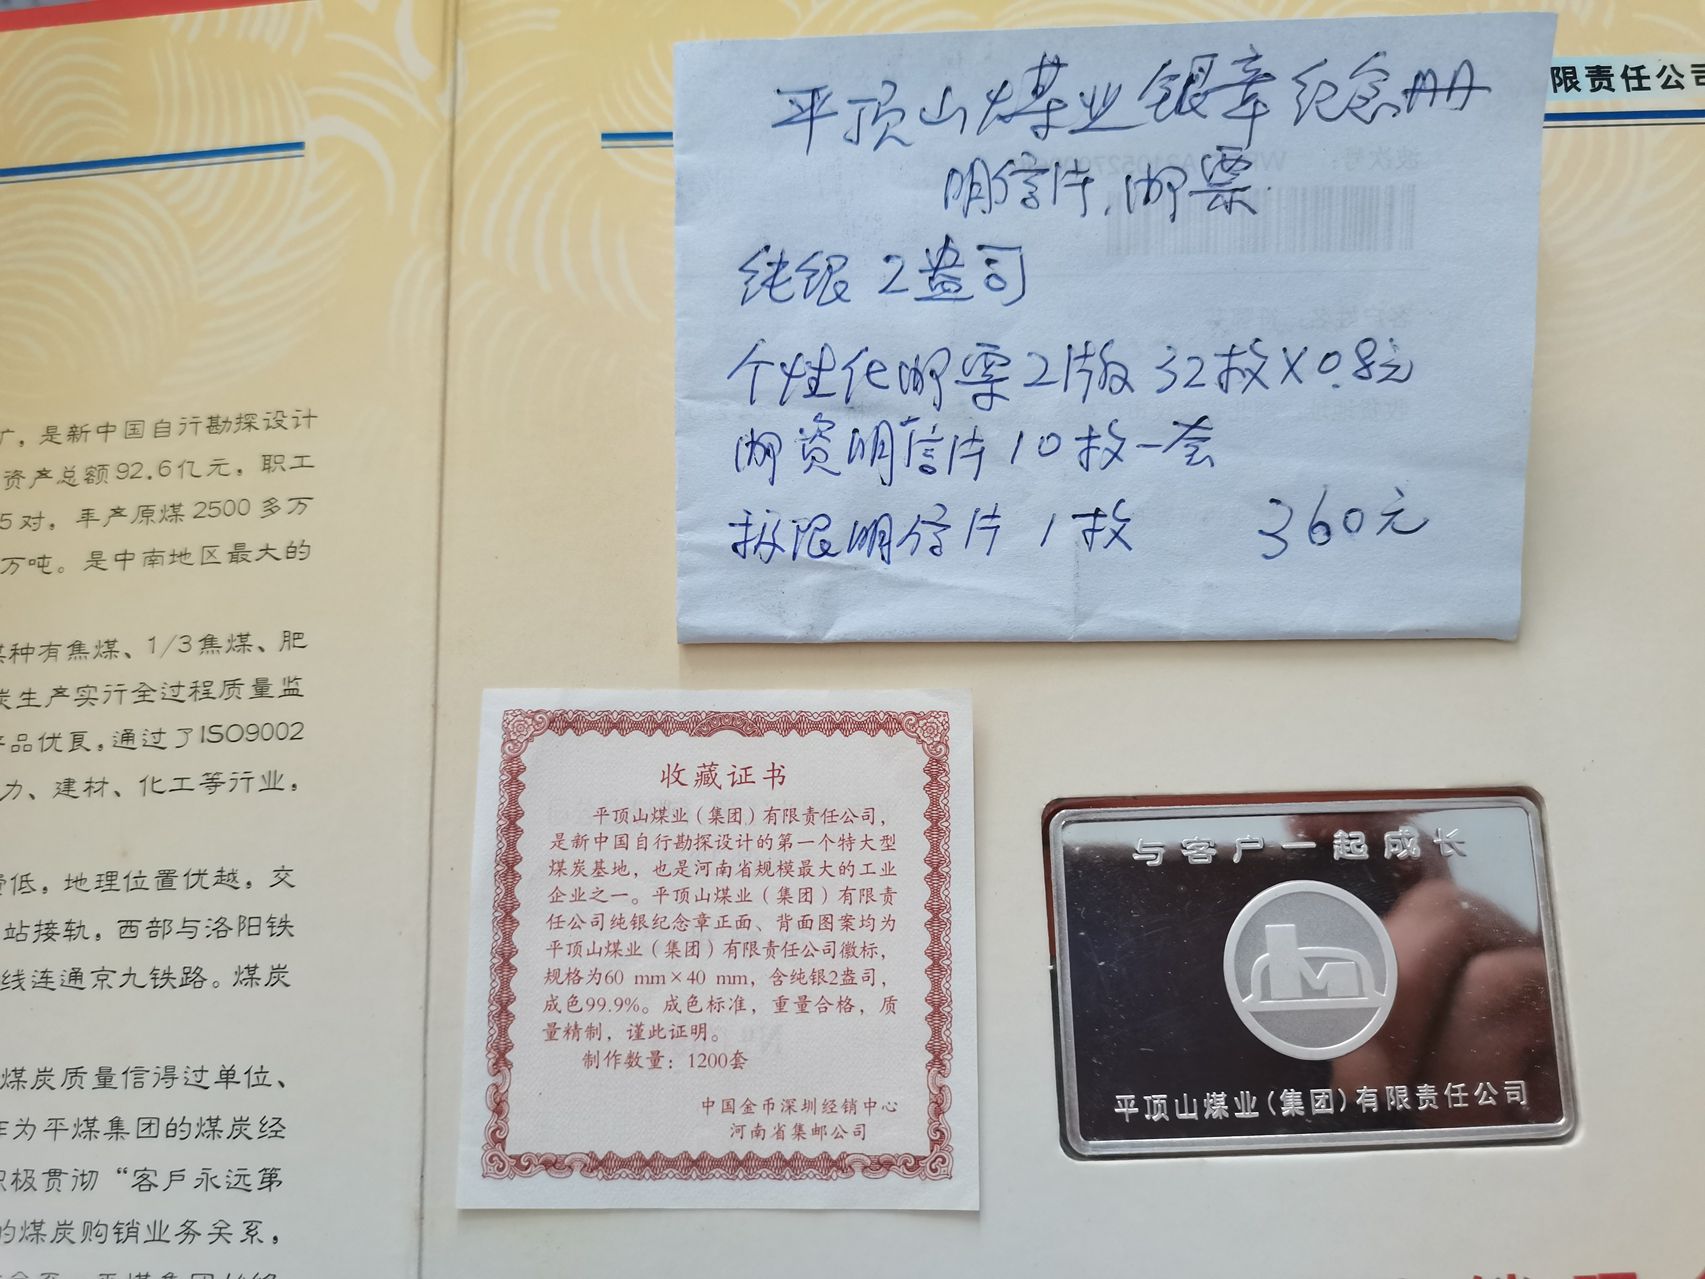 矿，是新中国自行勘探设计
资产总额92.6亿元，职工
5对，年产原煤2500多万
万吨。是中南地区最大的
煤种有焦煤、1/3焦煤、肥
炭生产实行全过程质量监
产品优良，通过了ISO9002
力、建材、化工等行业，
费低，地理位置优越，交
站接轨，西部与洛阳铁
线连通京九铁路。煤炭
煤炭质量信得过单位、
作为平煤集团的煤炭经
积极贯彻“客户永远第
的煤炭购销业务关系，
限责任公司
平顶山煤业银章纪念册
明信片.邮票
纯银2盎司
个性化邮票2版32枚×0.8元
邮资明信片10枚一套
极限明信片1枚 360元
收藏证书
平顶山煤业（集团）有限责任公司，
是新中国自行勘探设计的第一个特大型
煤炭基地，也是河南省规模最大的工业
企业之一。平顶山煤业（集团）有限责
任公司纯银纪念章正面、背面图案均为
平顶山煤业（集团）有限责任公司徽标，
规格为60 mm×40 mm，含纯银2盎司，
成色99.9%。成色标准，重量合格，质
量精制，谨此证明。
制作数量：1200套
中国金币深圳经销中心
河南省集邮公司
与客户一起成长
平顶山煤业(集团)有限责任公司